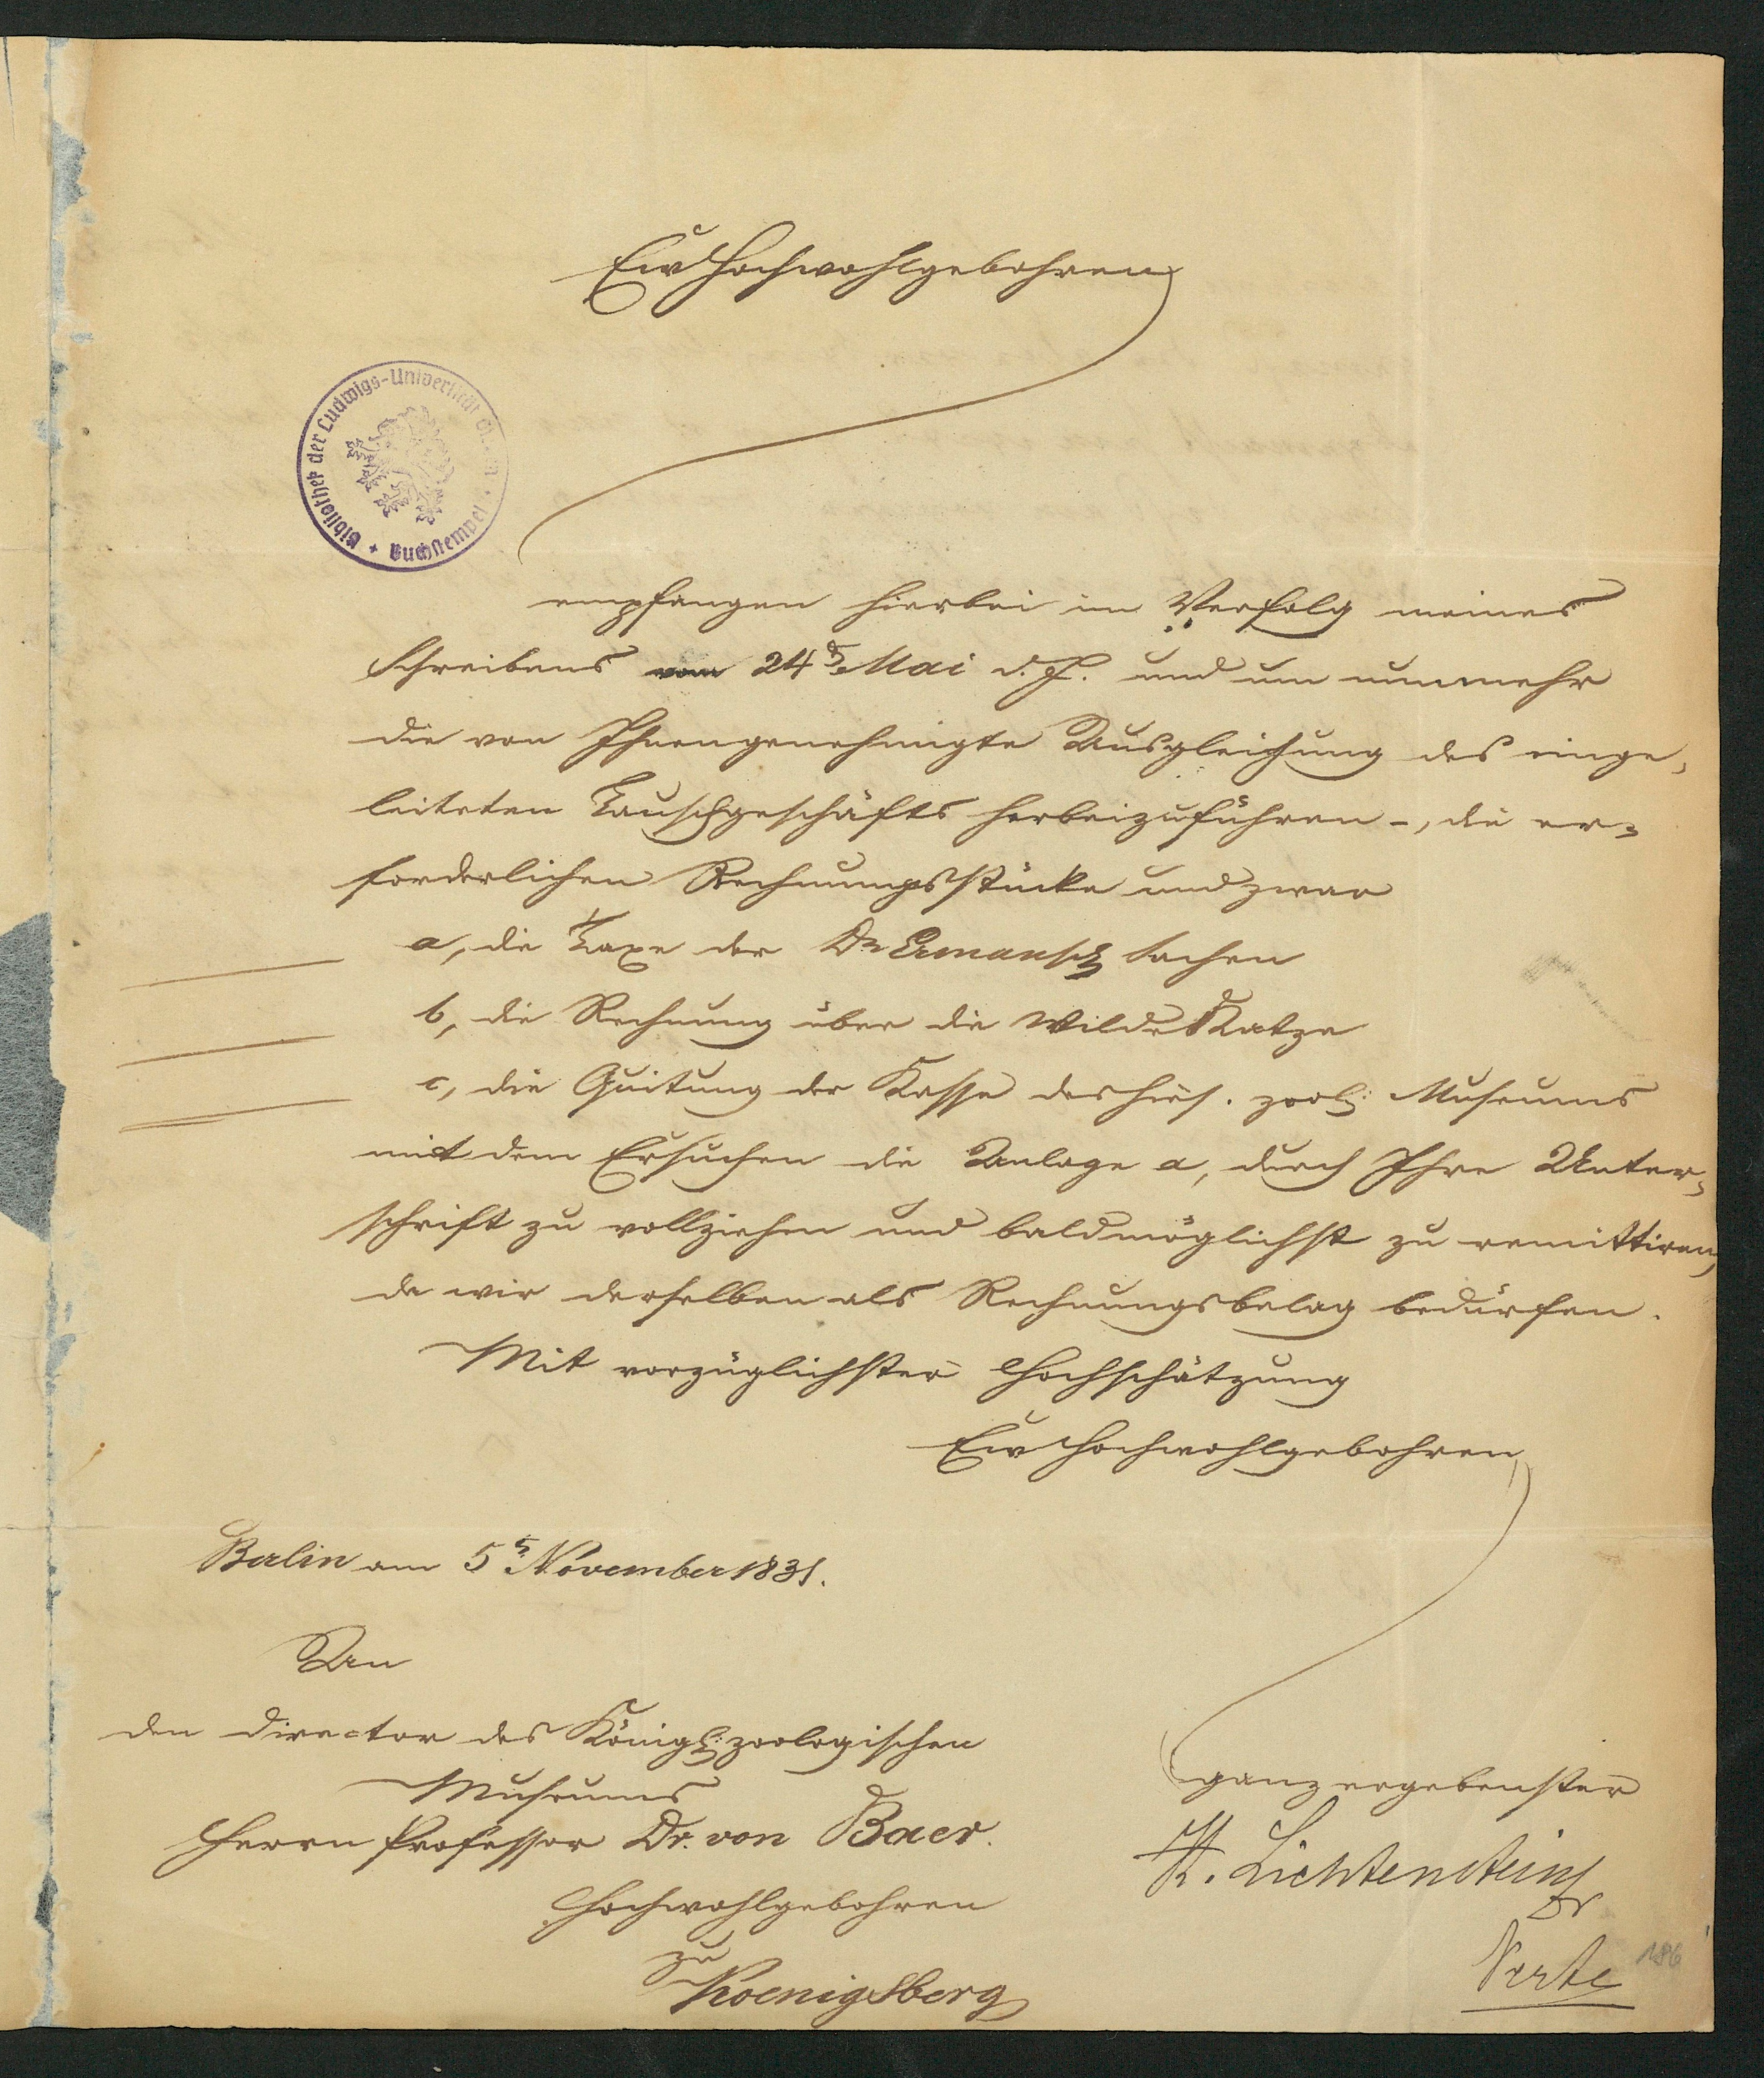 Ew Hochwohlgebohren
Bibliothek der Ludwigs-Universität Gießen
Buchstempel
empfangen hierbei im Verfolg meines
Schreibens vom 24t Mai d. J. und um nunmehr
die von Ihnen genehmigte Ausgleichung des einge-
leiteten Tauschgeschäfts herbeizuführen -, die er-
forderlichen Rechnungsstücke und zwar
a, die Taxe der Dr Ermansch Sachen
b, die Rechnung über die Wilde Katze
c, die Quitung der Kasse des hies. zool: Museums
mit dem Ersuchen die Anlage a, durch Ihre Unter-
schrift zu vollziehen und baldmöglichst zu remittiren,
da wir derselben als Rechnungsbelag bedürfen.
Mit vorzüglichster Hochschätzung
Ew Hochwohlgebohren
Berlin am 5t November 1831.
An
den Director des Königl: zoologischen
Museums
Herrn Professor Dr. von Baer.
Hochwohlgebohren
zu
Koenigsberg
ganz ergebenster
H. Lichtenstein
Verte
186